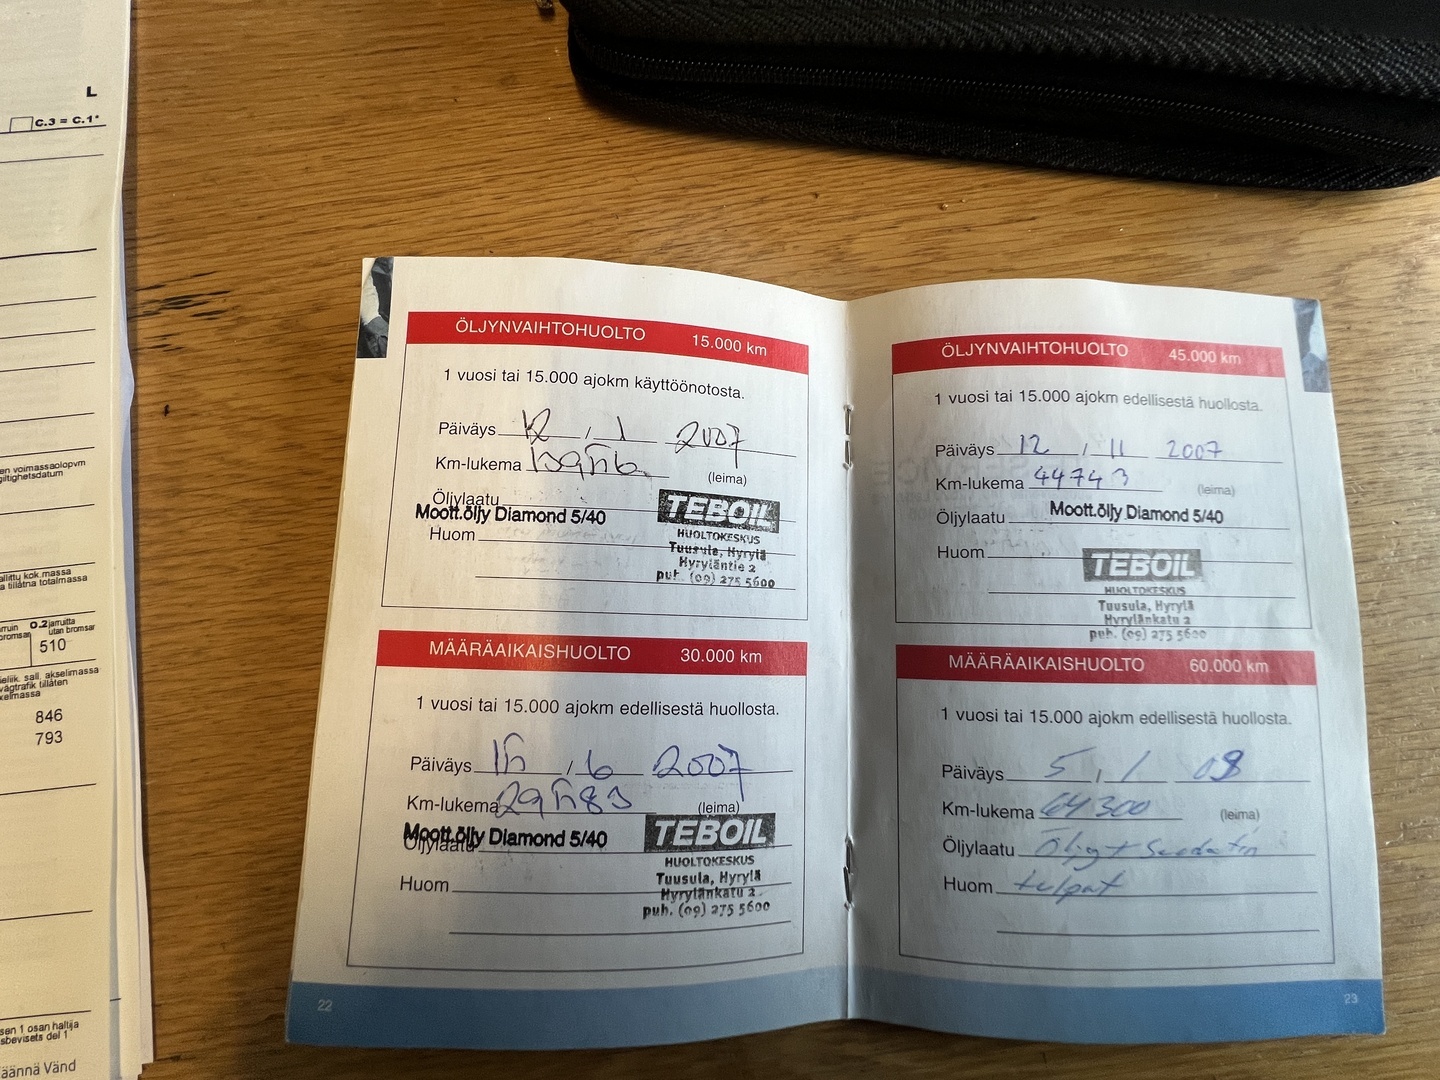 L
C.3 = C.1*
en voimassaolopvm
giltighetsdatum
allittu kok.massa
a tillåtna totalmassa
arruin O.2 jarruitta
bromsar utan bromsar
510
ieliik. sall. akselimassa
vägtrafik tillåten
kelmassa
846
793
sen 1 osan haltija
sbevisets del 1
äännä Vänd
ÖLJYNVAIHTOHUOLTO 15.000 km
1 vuosi tai 15.000 ajokm käyttöönotosta.
Päiväys 12 / 1 2007
Km-lukema
(leima)
Öljylaatu
Moott.öljy Diamond 5/40
Huom
TEBOIL
HUOLTOKESKUS
Tuusula, Hyrylä
Hyryläntie 2
puh. (09) 275 5600
MÄÄRÄAIKAISHUOLTO 30.000 km
1 vuosi tai 15.000 ajokm edellisestä huollosta.
Päiväys 15 / 6 2007
Km-lukema 29583
(leima)
Moott.öljy Diamond 5/40
Öljylaatu
Huom
TEBOIL
HUOLTOKESKUS
Tuusula, Hyrylä
Hyrylänkatu 2
puh. (09) 275 5600
22
ÖLJYNVAIHTOHUOLTO 45.000 km
1 vuosi tai 15.000 ajokm edellisestä huollosta.
Päiväys 12 / 11 2007
Km-lukema 44743
(leima)
Öljylaatu Moott.öljy Diamond 5/40
Huom
TEBOIL
HUOLTOKESKUS
Tuusula, Hyrylä
Hyrylänkatu 2
puh. (09) 275 5600
MÄÄRÄAIKAISHUOLTO 60.000 km
1 vuosi tai 15.000 ajokm edellisestä huollosta.
Päiväys 5 / 1 08
Km-lukema 64300 (leima)
Öljylaatu
Huom tulpat
23